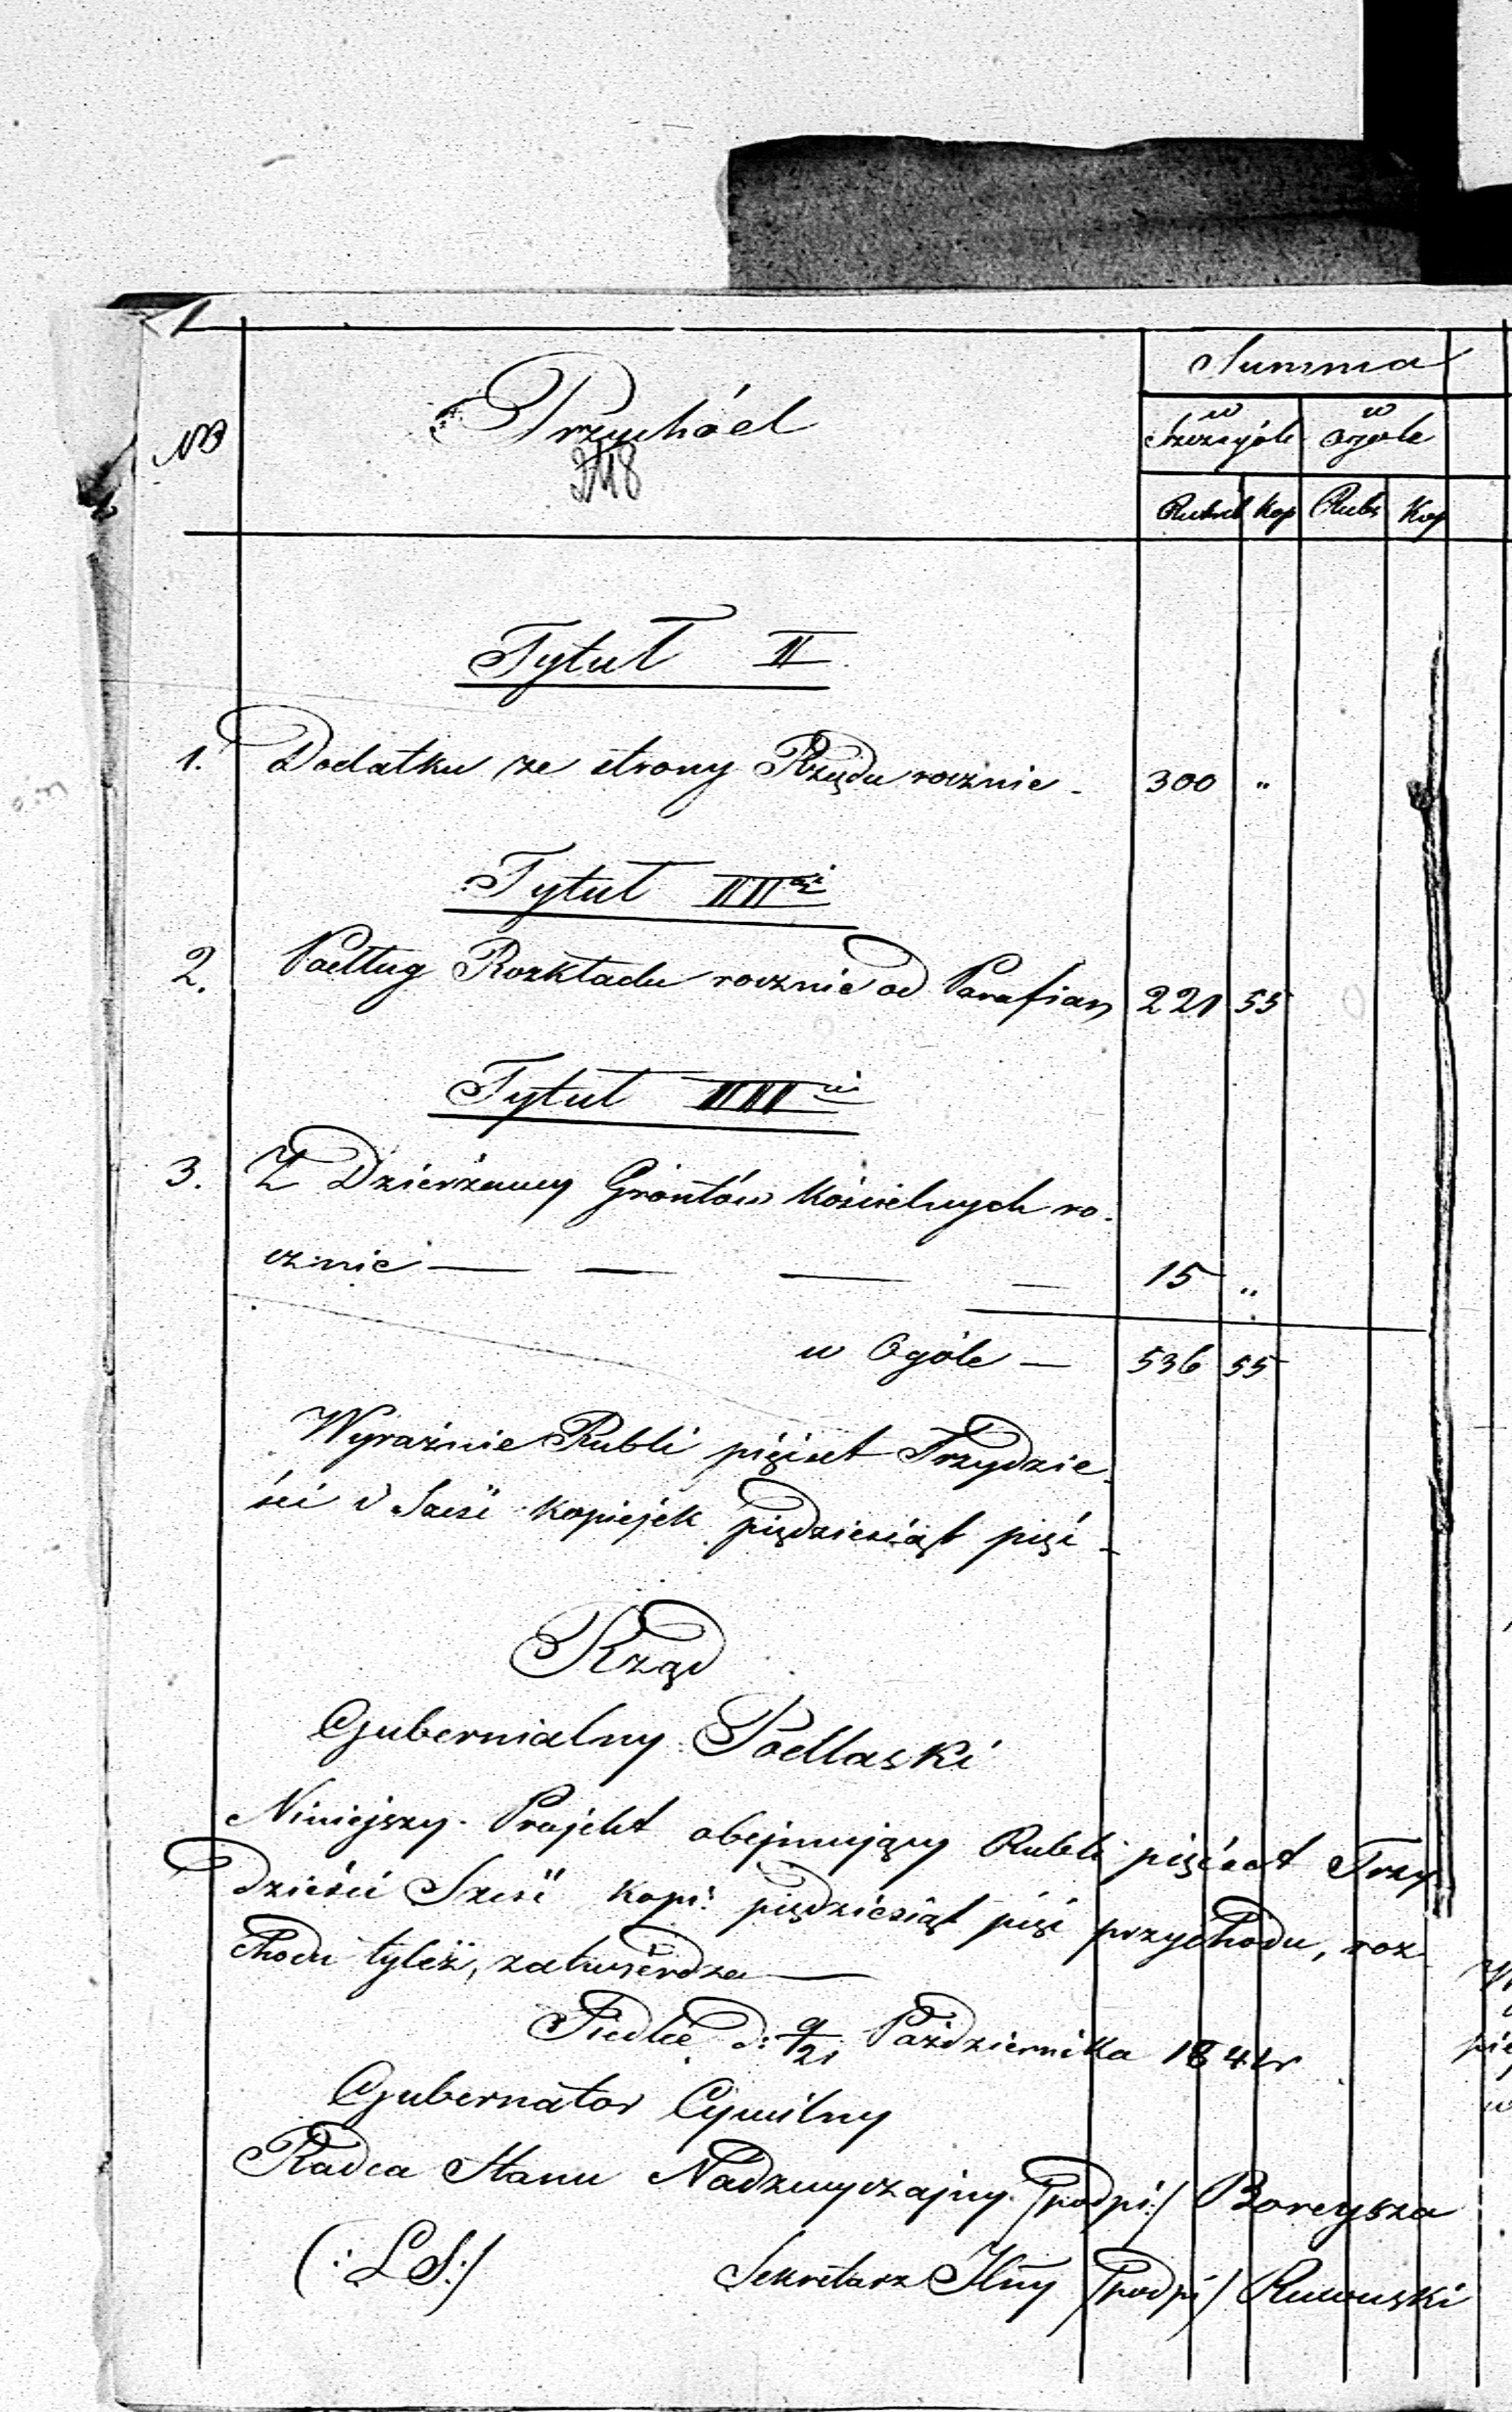 Summa
No Przychód w Szczególe w ogóle
348
Rubsr Kop Rubs Kop
Tytuł II
1. Dodatku ze strony Rządu rocznie - 300 "
Tytuł III
2. Podług Rozkładu rocznie od Parafian 221 55
Tytuł IIII
3. Z Dzierżawy Grontów Kościelnych ro-
cznie — — — — 15 "
w Ogóle — 536 55
Wyraźnie Rubli pięćset Trzydzie-
ści i Sześć kopiejek piędziesiąt pięć -
Rząd
Gubernialny Podlaski
Niniejszy Projekt obejmujący Rubli pięćset Trzy
dzieści Sześć kopi: piędziesiąt pięć przychodu, roz
chodu tyleż, zatwierdza —
Siedlce d: 9/21 Października 184
Gubernator Cywilny
Radca Stanu Nadzwyczajny /podpi:/ Boreysza
(: LS :) Sekretarz Jlny /podpi/